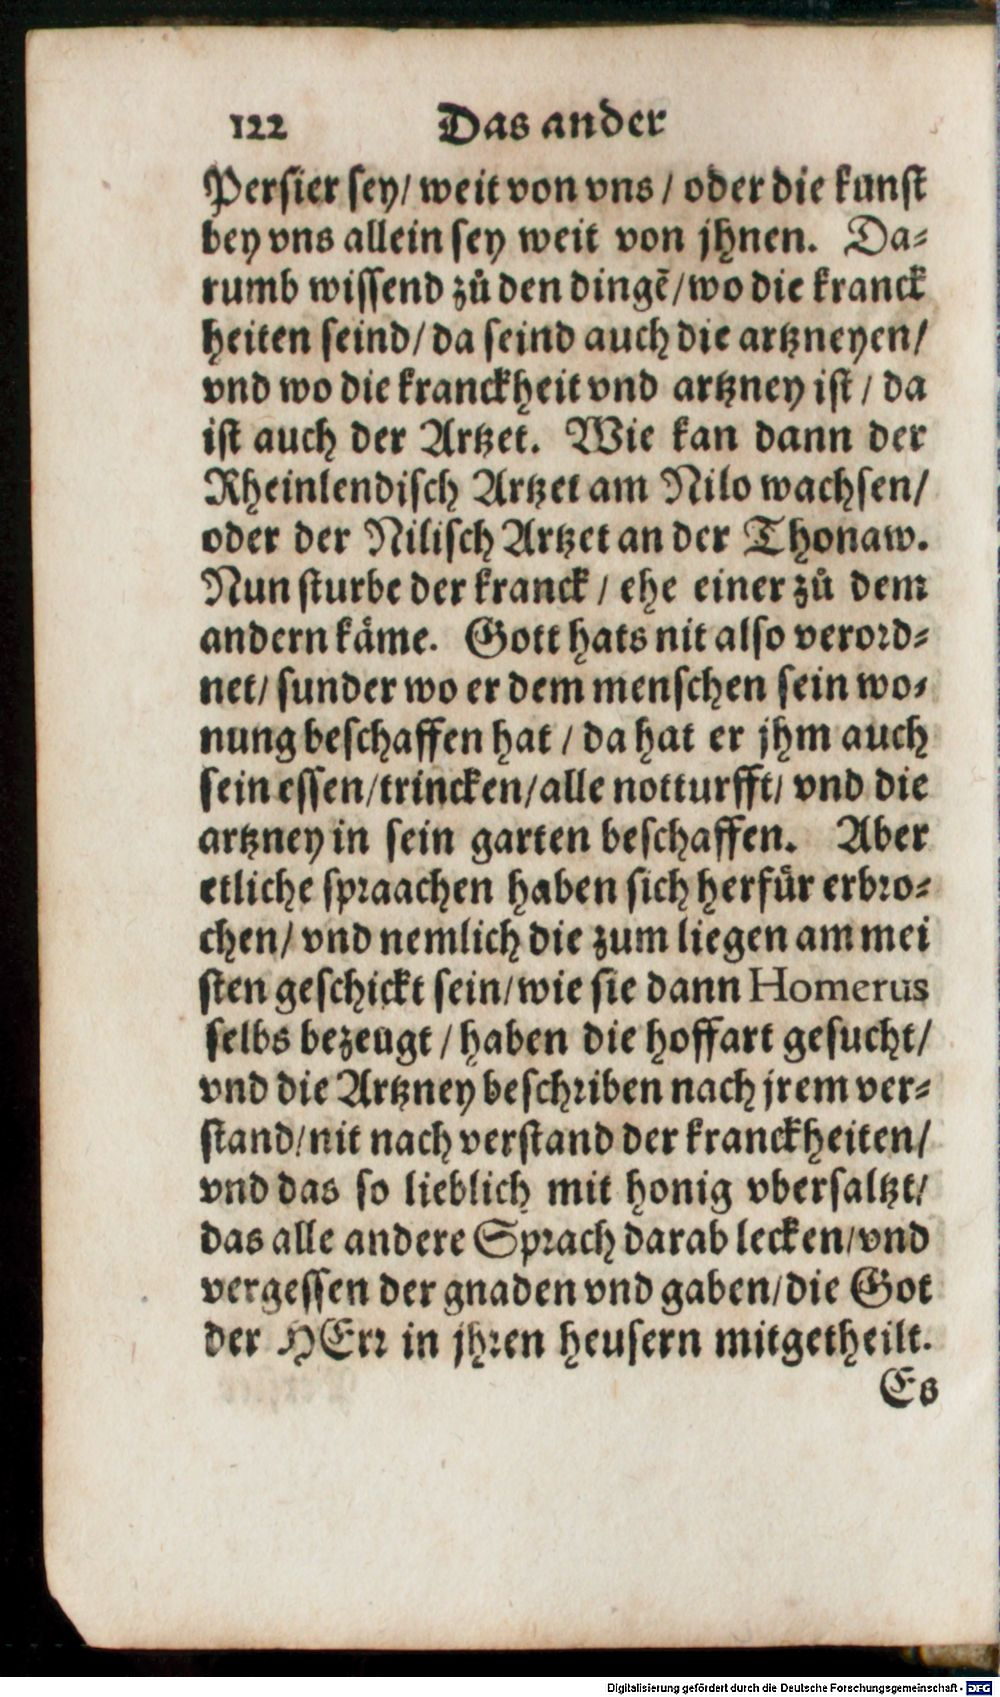 122 Das ander
Persier sey/ weit von vns / oder die kunst
bey vns allein sey weit von jhnen. Da-
rumb wissend zů den dingē/wo die kranck
heiten seind/ da seind auch die artzneyen/
vnd wo die kranckheit vnd artzney ist / da
ist auch der Artzet. Wie kan dann der
Rheinlendisch Artzet am Nilo wachsen/
oder der Nilisch Artzet an der Thonaw.
Nun sturbe der kranck / ehe einer zů dem
andern kåme. Gott hats nit also verord-
net/ sunder wo er dem menschen sein wo-
nung beschaffen hat / da hat er jhm auch
sein essen/trincken/alle notturfft/ vnd die
artzney in sein garten beschaffen. Aber
etliche spraachen haben sich herfůr erbro-
chen/ vnd nemlich die zum liegen am mei
sten geschickt sein/wie sie dann Homerus
selbs bezeugt / haben die hoffart gesucht/
vnd die Artzney beschriben nach jrem ver-
stand/nit nach verstand der kranckheiten/
vnd das so lieblich mit honig vbersaltzt/
das alle andere Sprach darab lecken/vnd
vergessen der gnaden vnd gaben/die Got
der HErr in jhren heusern mitgetheilt.
Es
Digitalisierung gefördert durch die Deutsche Forschungsgemeinschaft - DFG